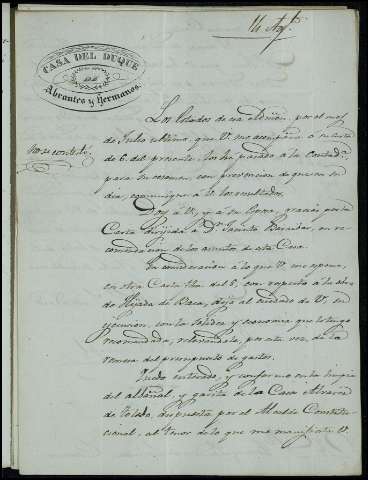 14 Ag.to
CASA DEL DUQUE
DE
Abrantes y Hermanos.
Los Estados de esa admon, por el mes
de Julio ultimo, que V. me acompaña a su carta
de 6 del presente, los he pasado a la Contad.a
para su examen, con prevencion de que en su
dia, comunique a V. los resultados.
Doy a V., y a su Esposa, gracias por la
Carta dirijida a D.n Jacinto en re-
comendacion de los asuntos de esta Casa.
En consideracion a lo que V. me espone,
en otra Carta fha. del 6, con respecto a la obra
de Hijada de Baca, dejo al cuidado de V. su
ejecucion, con la solidez y economia que le tengo
recomendada, relevandole, por esta vez, de la
remesa del presupuesto de gastos.
Quedo enterado, y conforme en la limpia
del albañal, y garita de la Casa Alvarez
de Toledo, dispuesta por el Alcalde Constitu-
cional, al tenor de lo que me manifiesta V.